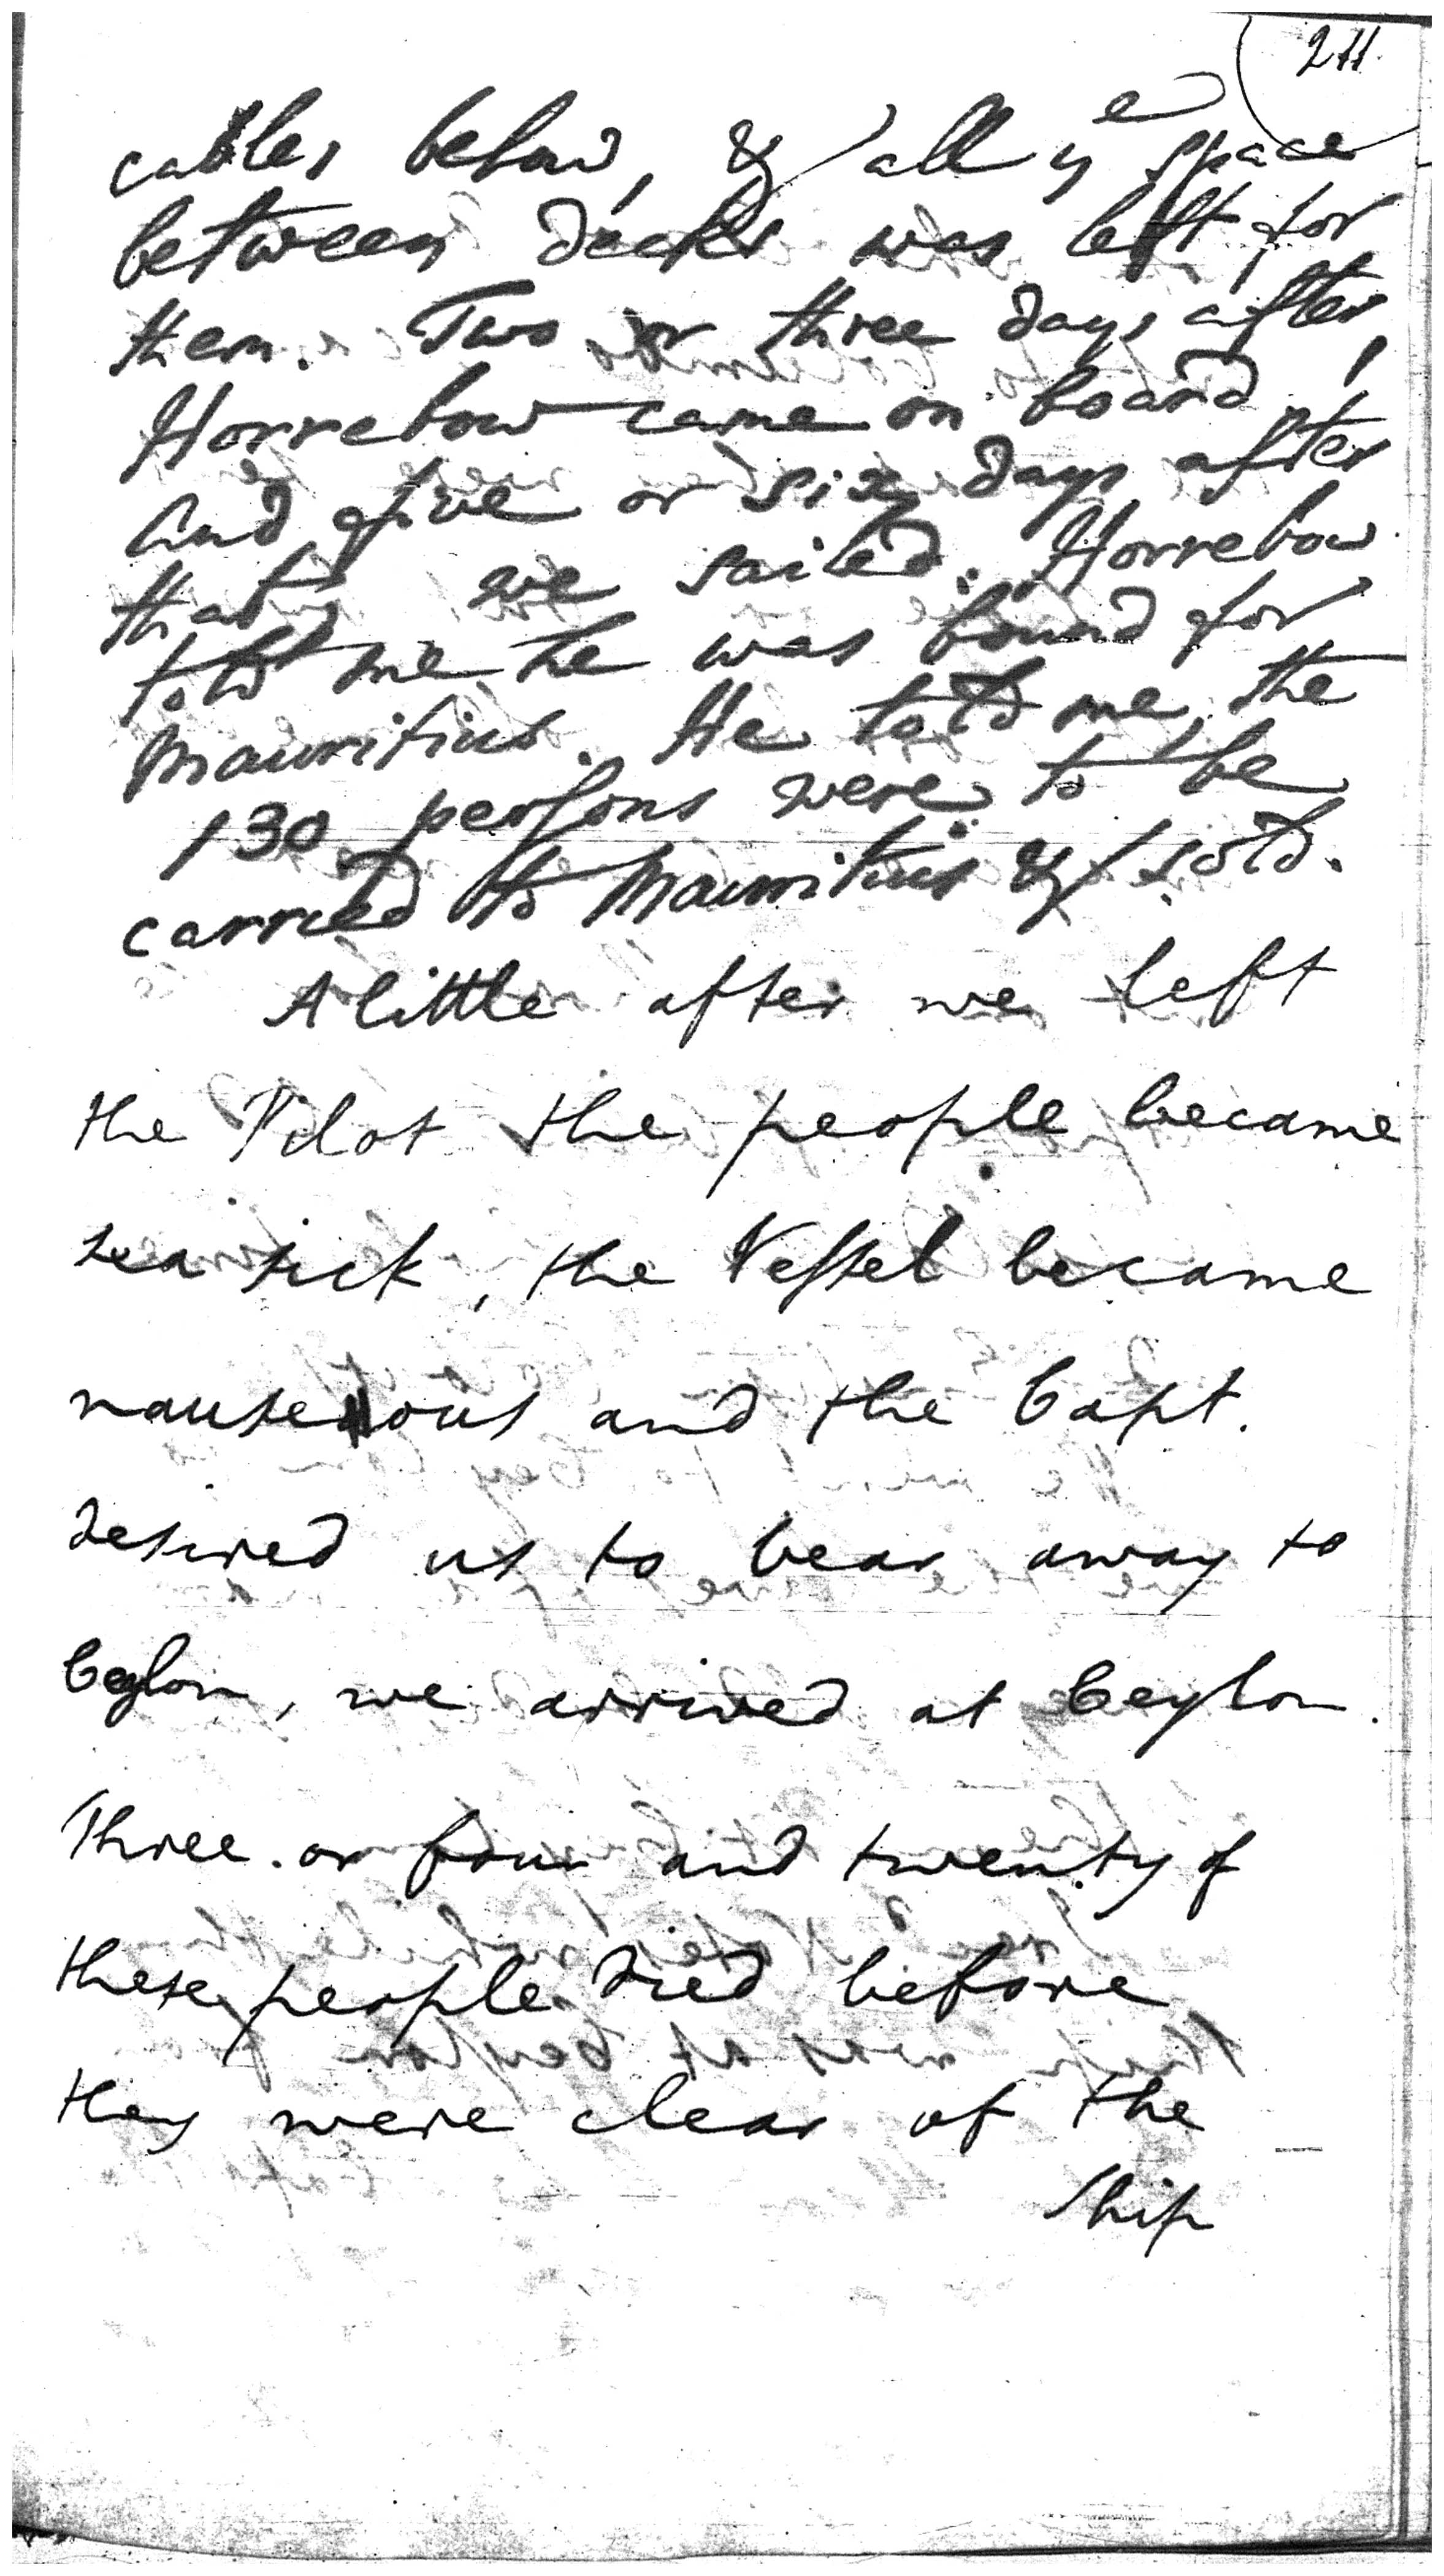 211.
cables below, & all yᵉ space
between decks was left for
them. Two or three days after,
Horrebow came on board,
And five or six days after
that we sailed. Horrebow
told me he was bound for
Mauritius. He told me, the
130 perſons were to be
carried to Mauritius & sold.
A little after we left
the Pilot the people became
sea sick, the Veſsel became
nauseous and the Capt.
desired us to bear away to
Ceylon, we arrived at Ceylon.
Three or four and twenty of
these people died before
they were clear of the
Ship